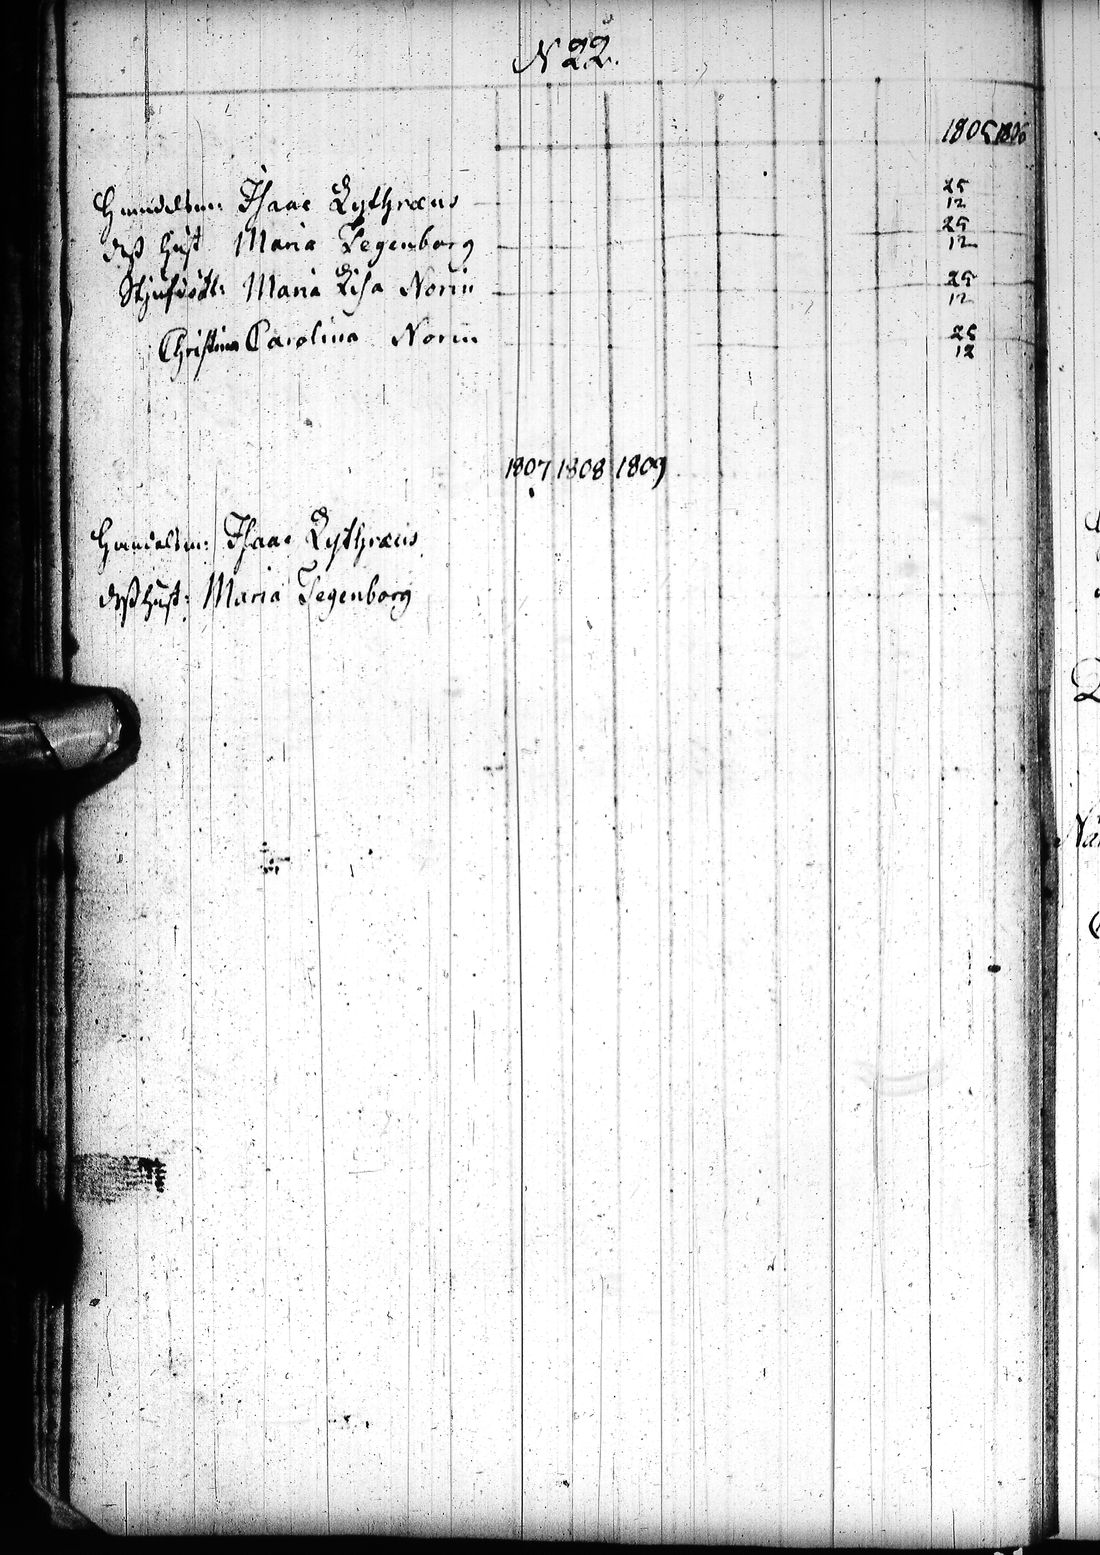 N 22.
1805 1806
Handelsm: Isaac Lythræus 25 12
dess hust Maria Tegenborg 25 12
Stjufdott: Maria Lisa Norin 25 12
Christina Carolina Norin 25 12
1807 1808 1809
Handelsm: Isaac Lythræus
dess hust: Maria Tegenborg